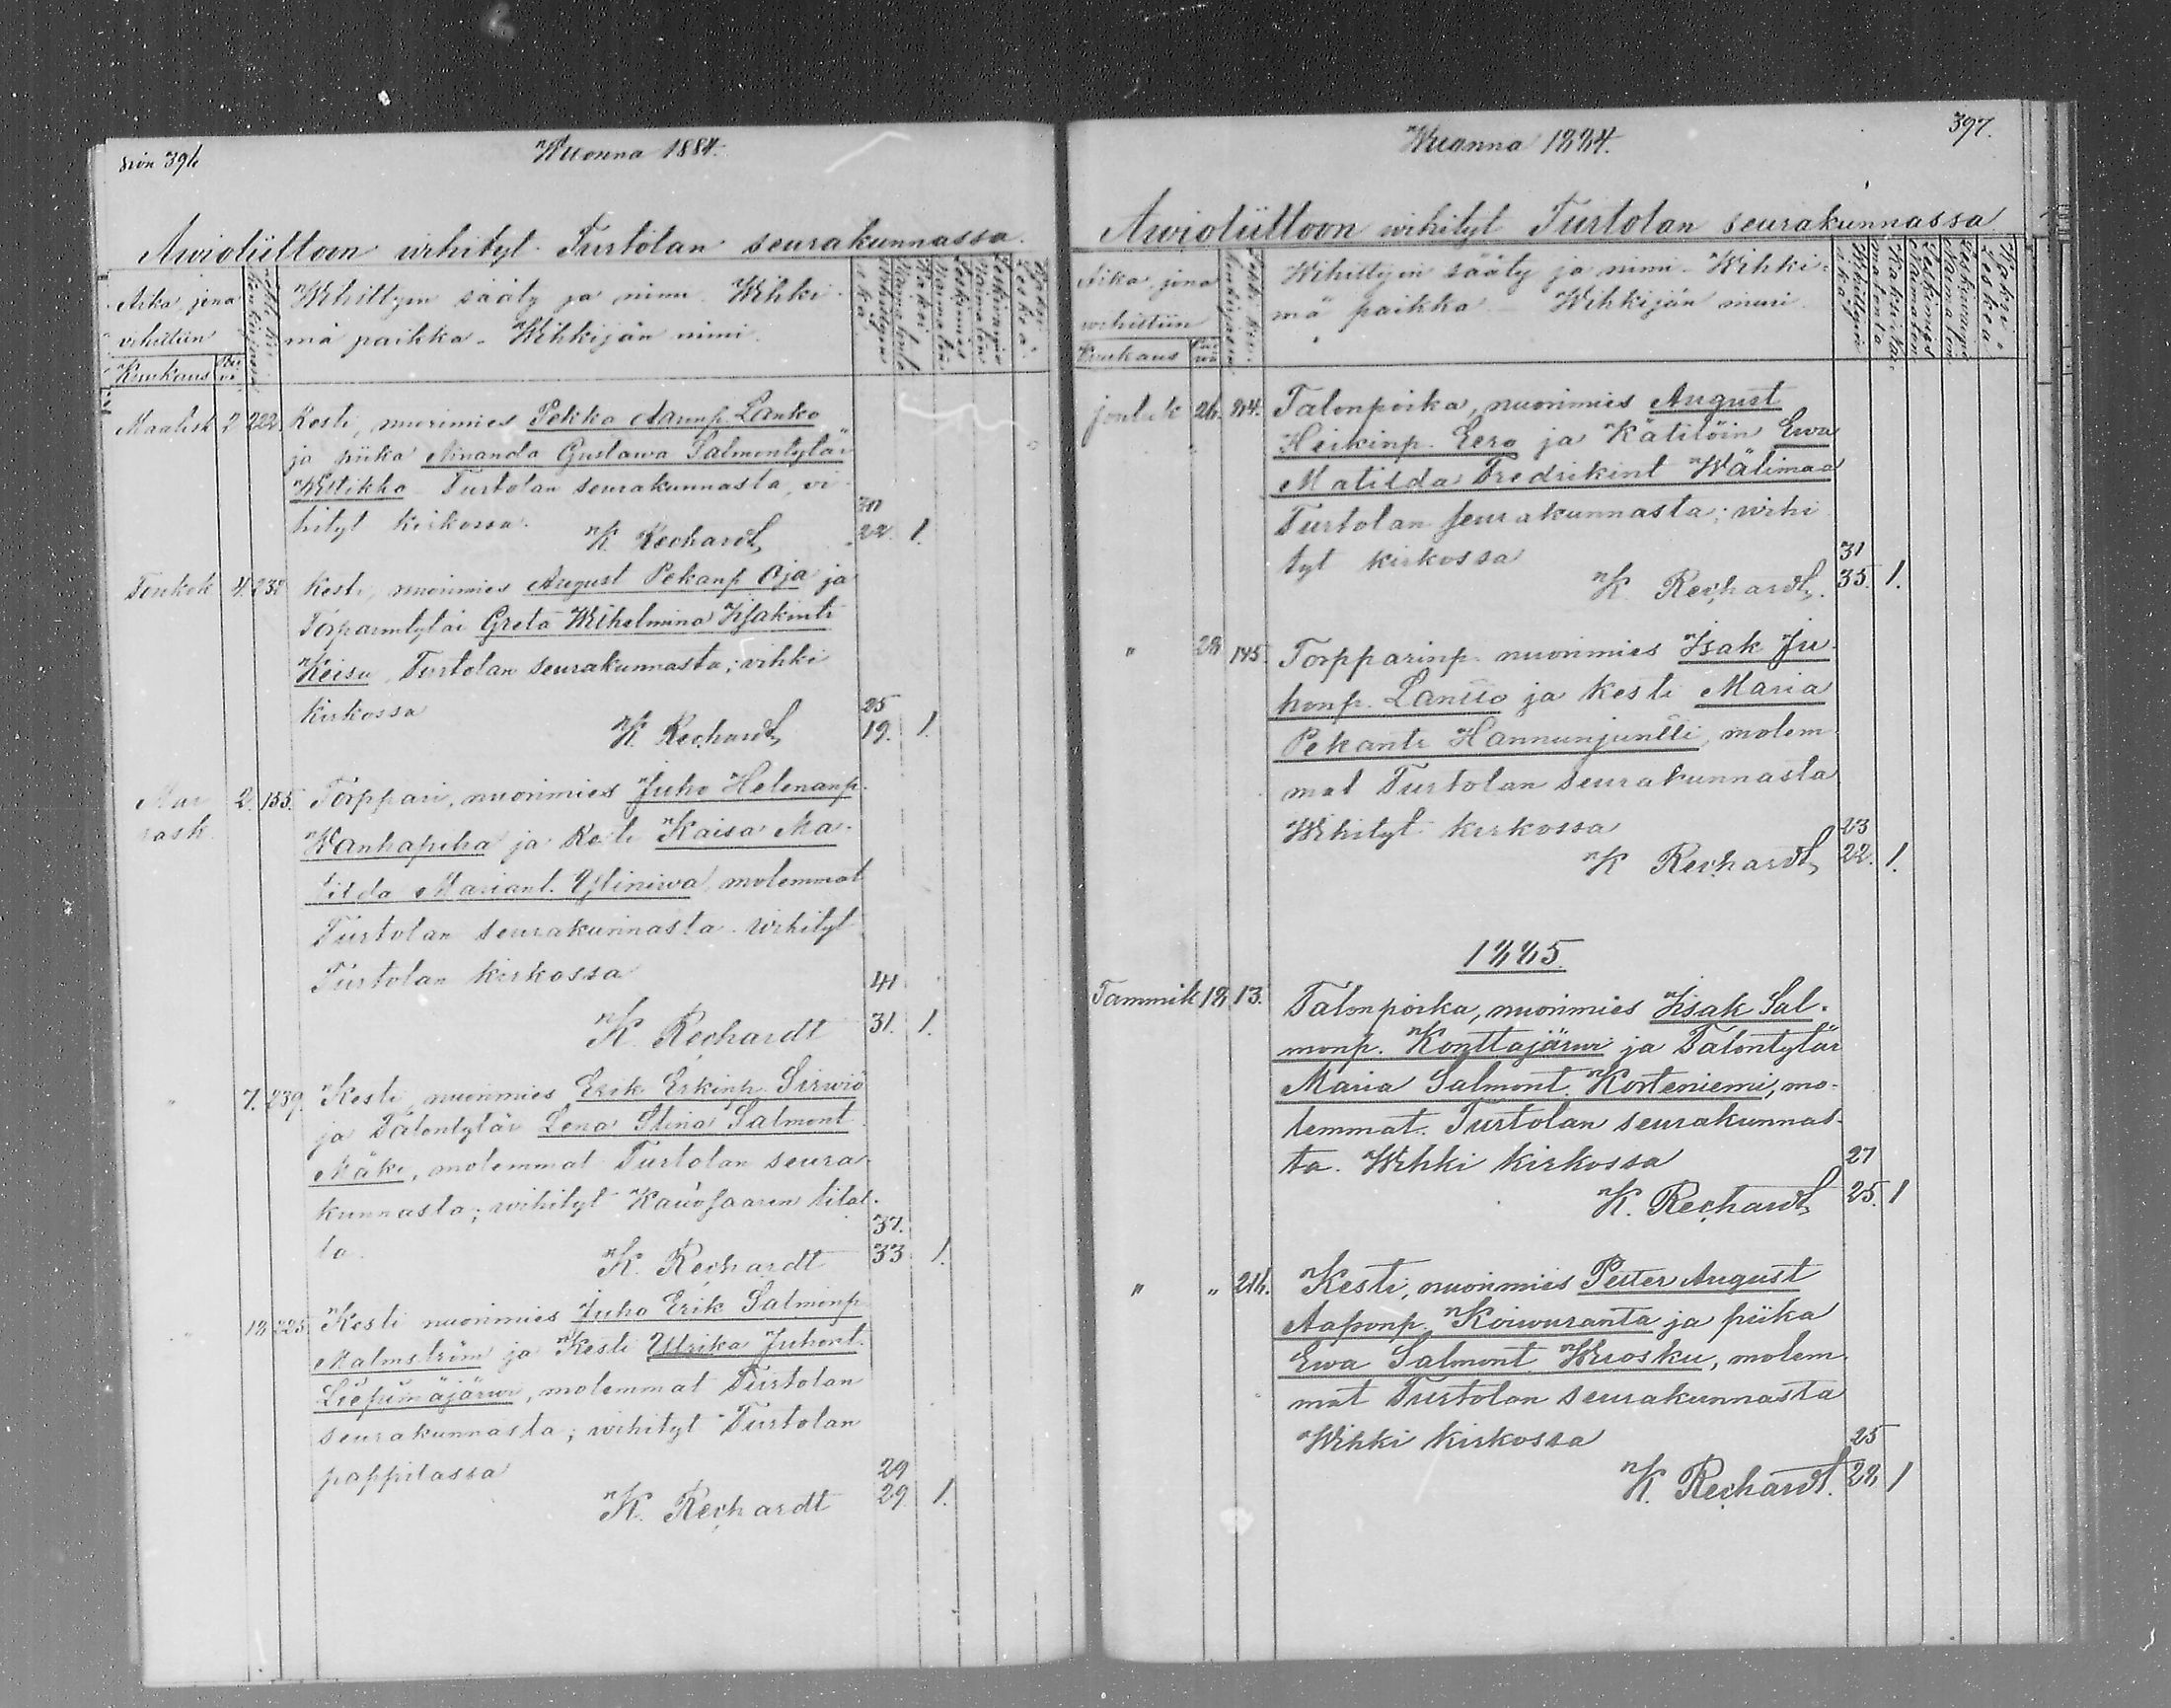 sivu 396
Wuonna 1884.
Awioliittoon wihityt Turtolan seurakunnassa.
Aika jona
wihittiin
Kuukaus
Wihittyin sääty ja nimi. Wihki-
mä paikka - Wihkijän nimi.
Maalisk 2 222. Kesti, nuorimies Pekka Aaronp. Lanko
ja piika Amanda Gustawa Salmontytär
Wstikko Turtolan seurakunnasta, vi-
hityt kirkossa.
K. Rechardt 22. 1.
Toukok 4. 232 Kesti, nuorimies August Pekanp Oja ja
Torparintytär Greta Wilhelmina Iisakint
Keisu Turtolan seurakunnasta; vihki
kirkossa 25
K. Rechardt 19. 1.
Mar 2. 155. Torppari, nuorimies Juho Helenanp.
rask. Wanhapiha ja Kesti Kaisa Ma-
tilda Mariant. Yliniwa, molemmat
Turtolan seurakunnasta. wihityt
Turtolan kirkossa 41
K. Rechardt 31. 1.
" 7. 239. Kesti, nuorimies Erik Erkinp. Sirwiö
ja Talontytär Lena Stina Salmont
Mäki, molemmat Turtolan seura-
kunnasta; wihityt Kauosaaren tilal-
la. 37.
K. Rechardt 33 1.
" 18 225 Kesti nuorimies Juho Erik Salmonp
Malmström ja Kesti Ulrika Juhont.
Liepimäjärwi, molemmat Turtolan
seurakunnasta; wihityt Turtolan
pappilassa 29
K. Rechardt 29 1.
Wuonna 1884.
397.
Awioliittoon wihityt Turtolan seurakunnassa
Aika, jona
wihittiin
Kuukaus
Wihittyin sääty ja nimi - Wihki-
mä paikka - Wihkijän nimi.
jouluk 26. 84. Talonpoika, nuorimies August
Heikinp. Eero ja Kätilöin Ewa
Matilda Fredrikint Wälimaa
Turtolan seurakunnasta; wihi
tyt kirkossa 31
K. Rechardt. 35. 1.
" 28 145. Torpparinp. nuorimies Isak Ju-
honp. Lantto ja Kesti Maria
Pekantr Hannunjuntti, molem
mat Turtolan seurakunnasta
Wihityt kirkossa 23
K Rechardt 22. 1.
1885.
Tammik 18 13. Talonpoika, nuorimies Iisak Sal-
monp. Konttajärwi ja Talontytär
Maria Salmont. Korteniemi, mo-
lemmat Turtolan seurakunnas-
ta. Wihki kirkossa 27
K. Rechardt 25. 1
" " 216. Kesti, nuorimies Petter August
Aaponp. Koiwuranta ja piika
Ewa Salmont Wuosku, molem-
mat Turtolan seurakunnasta
Wihki kirkossa 25
K. Rechardt. 28 1